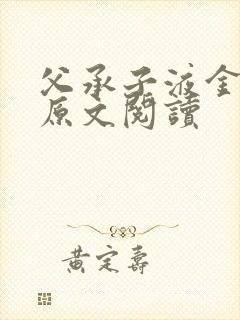 父承子液金
原文閱讀
黄定壽